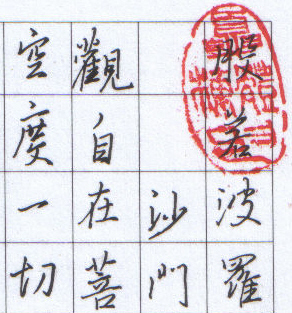 般若波羅
沙門
觀自在菩
空度一切